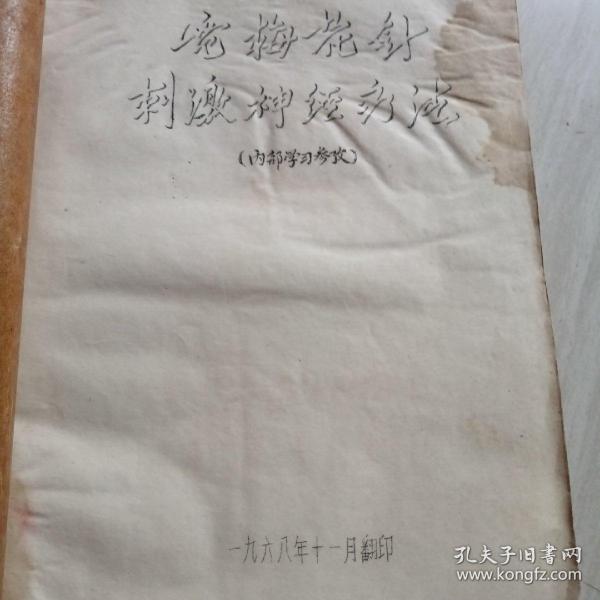 梅花針
刺激神経疗法
(内部学习参考)
一九六八年十一月翻印
孔夫子旧书网
www.kongfz.com